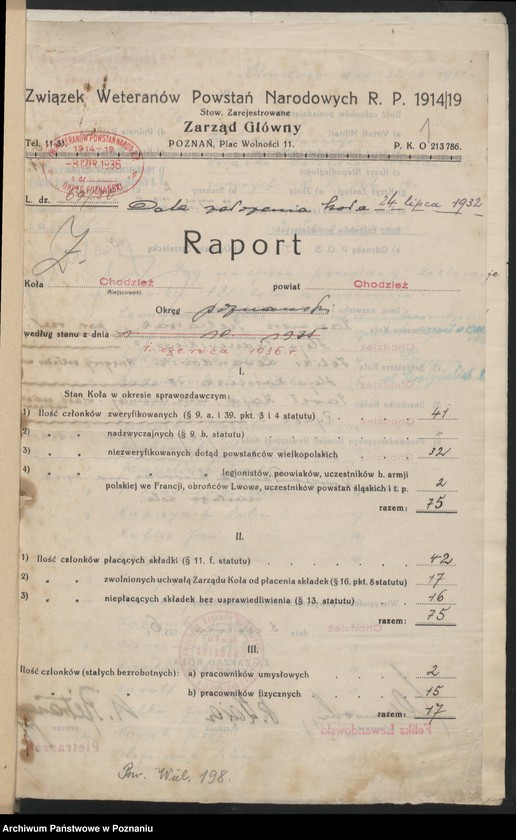 Związek Weteranów Powstań Narodowych R. P. 1914/19
Stow. Zarejestrowane
Zarząd Główny
POZNAŃ, Plac Wolności 11.
P. K. O 213786.
1914-19
-8.CZR.1936
OKRĘG POZNAŃSKI
L. dz. 69/36
Data założenia koła 24 lipca 1932
Raport
Koła Chodzież powiat Chodzież
Miejscowość
Okręg poznański
według stanu z dnia
1. czerwca 1936 r.
I.
Stan Koła w okresie sprawozdawczym:
1) Ilość członków zweryfikowanych (§ 9. a. i 39. pkt. 3 i 4 statutu) 41
2) „ „ nadzwyczajnych (§ 9. b. statutu) -
3) „ „ niezweryfikowanych dotąd powstańców wielkopolskich 32
4) „ „ legjonistów, peowiaków, uczestników b. armji
polskiej we Francji, obrońców Lwowa, uczestników powstań śląskich i t. p. 2
razem: 75
II.
1) Ilość członków płacących składki (§ 11. f. statutu) 42
2) „ „ zwolnionych uchwałą Zarządu Koła od płacenia składek (§ 16. pkt. 8 statutu) 17
3) „ „ niepłacących składek bez usprawiedliwienia (§ 13. statutu) 16
razem: 75
III.
Ilość członków (stałych bezrobotnych): a) pracowników umysłowych 2
„ „ b) pracowników fizycznych 15
razem: 17
Feliks Lewandowski
Pow. Wiel. 198.
Archiwum Państwowe w Poznaniu